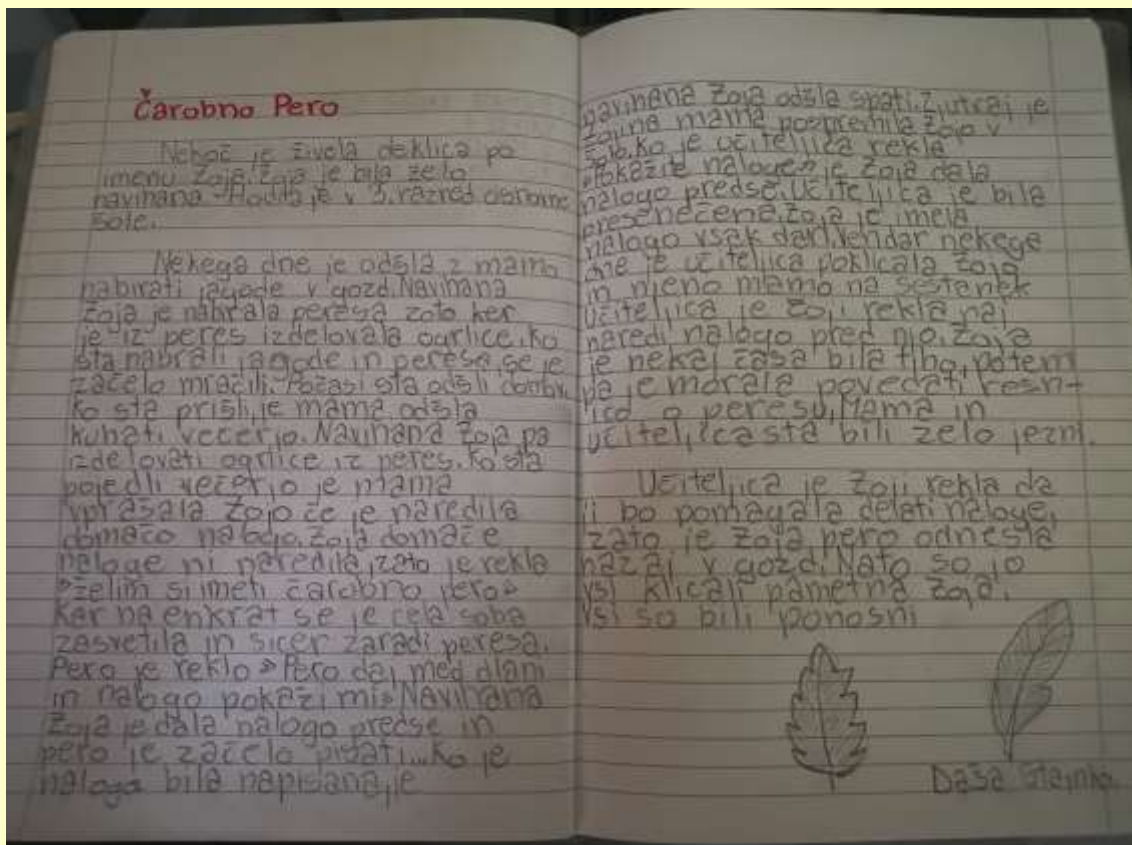 Čarobno Pero
Nekoč je živela deklica po
imenu Zoja. Zoja je bila zelo
navihana. Hodila je v 3. razred osnovne
šole.
Nekega dne je odšla z mamo
nabirati jagode v gozd. Navihana
Zoja je nabrala peresa zato ker
je iz peres izdelovala ogrlice. Ko
sta nabrali jagode in peresa, se je
začelo mračiti. Počasi sta odšli domov.
Ko sta prišli, je mama odšla
kuhati večerjo. Navihana Zoja pa
izdelovati ogrlice iz peres. Ko sta
pojedli večerjo je mama
vprašala Zojo če je naredila
domačo nalogo. Zoja domače
naloge ni naredila, zato je rekla
»želim si imeti čarobno pero»
Kar na enkrat se je cela soba
zasvetila in sicer zaradi peresa.
Pero je reklo »Pero daj med dlani
in nalogo pokaži mi» Navihana
Zoja je dala nalogo predse in
pero je začelo pisati... Ko je
naloga bila napisana, je
navihana Zoja odšla spati. Zjutraj je
Zojina mama pospremila Zojo v
šolo. Ko je učiteljica rekla
»Pokažite naloge» je Zoja dala
nalogo predse. Učiteljica je bila
presenečena. Zoja je imela
nalogo vsak dan. Vendar nekega
dne je učiteljica poklicala Zojo
in njeno mamo na sestanek
Učiteljica je Zoji rekla naj
naredi nalogo pred njo. Zoja
je nekaj časa bila tiho, potem
pa je morala povedati resn-
ico o peresu. Mama in
učiteljica sta bili zelo jezni.
Učiteljica je Zoji rekla da
ji bo pomagala delati naloge,
zato je Zoja pero odnesla
nazaj v gozd. Nato so jo
vsi klicali pametna Zoja.
Vsi so bili ponosni
Daša